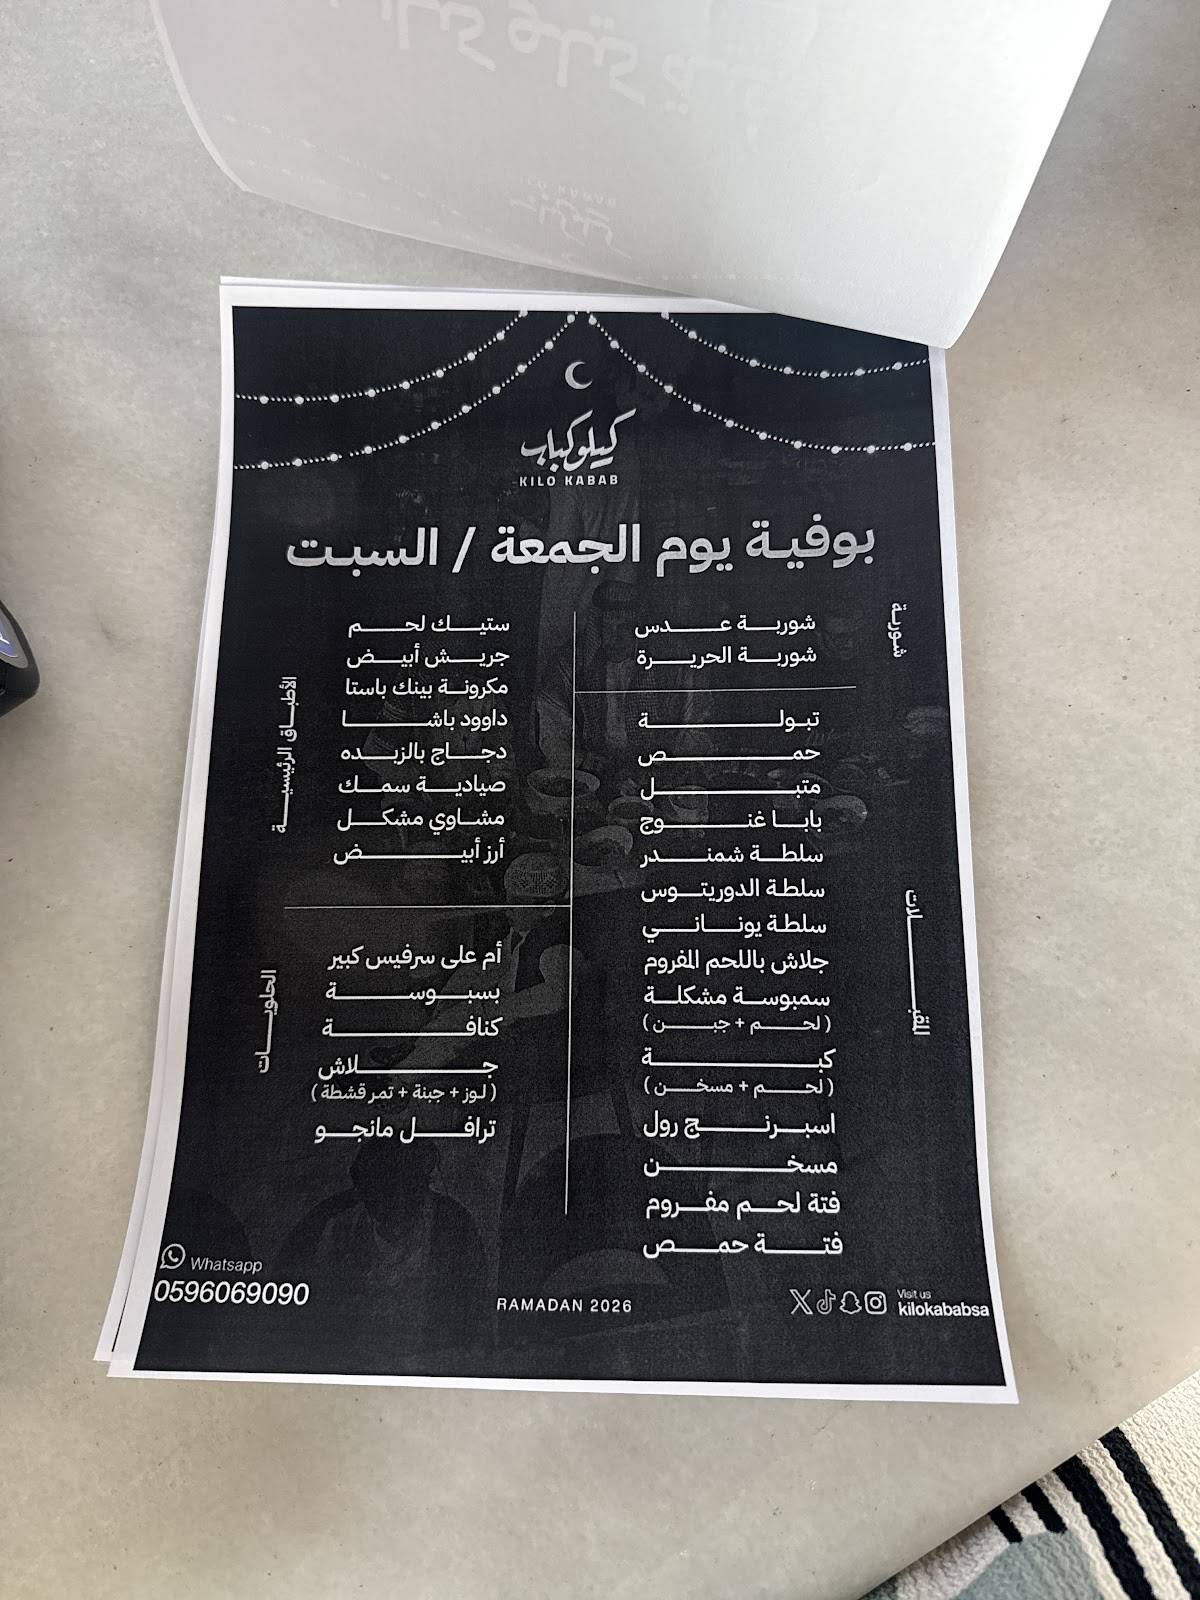 كيلو كباب
KILO KABAB
بوفية يوم الجمعة / السبت
شوربة
شوربة عدس
شوربة الحريرة
المقبلات
تبولة
حمص
متبل
بابا غنوج
سلطة شمندر
سلطة الدوريتوس
سلطة يوناني
جلاش باللحم المفروم
سمبوسة مشكلة
( لحم + جبن )
كبة
( لحم + مسخن )
اسبرنج رول
مسخن
فتة لحم مفروم
فتة حمص
الأطباق الرئيسية
ستيك لحم
جريش أبيض
مكرونة بينك باستا
داوود باشا
دجاج بالزبده
صيادية سمك
مشاوي مشكل
أرز أبيض
الحلويات
أم على سرفيس كبير
بسبوسة
كنافة
جلاش
( لوز + جبنة + تمر قشطة )
ترافل مانجو
Whatsapp
0596069090
RAMADAN 2026
Visit us
kilokababsa